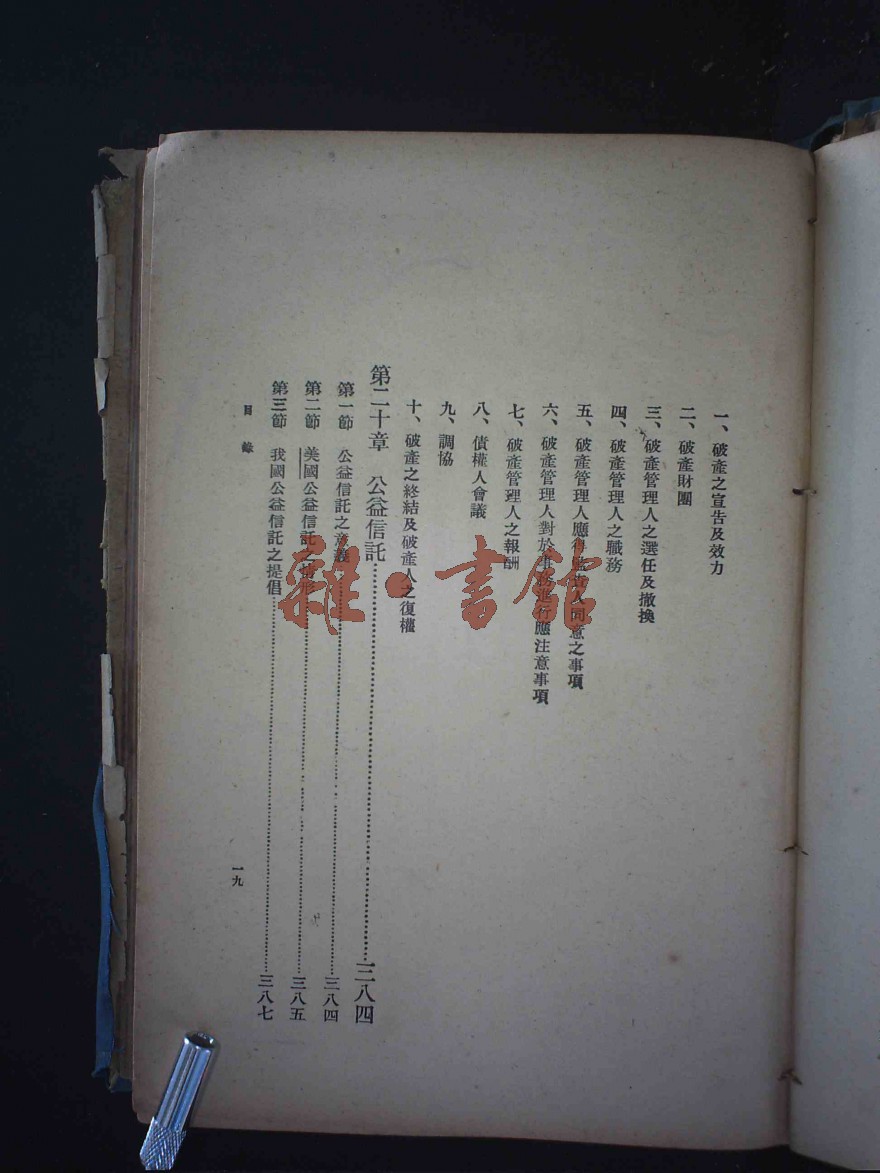 一、破產之宣告及效力
二、破產財團
三、破產管理人之選任及撤換
四、破產管理人之職務
五、破產管理人應得監查人同意之事項
六、破產管理人對於事務進行應注意事項
七、破產管理人之報酬
八、債權人會議
九、調協
十、破產之終結及破產人之復權
第二十章 公益信託……三八四
第一節 公益信託之意義……三八四
第二節 美國公益信託之情形……三八五
第三節 我國公益信託之提倡……三八七
目錄
一九
雜·書館